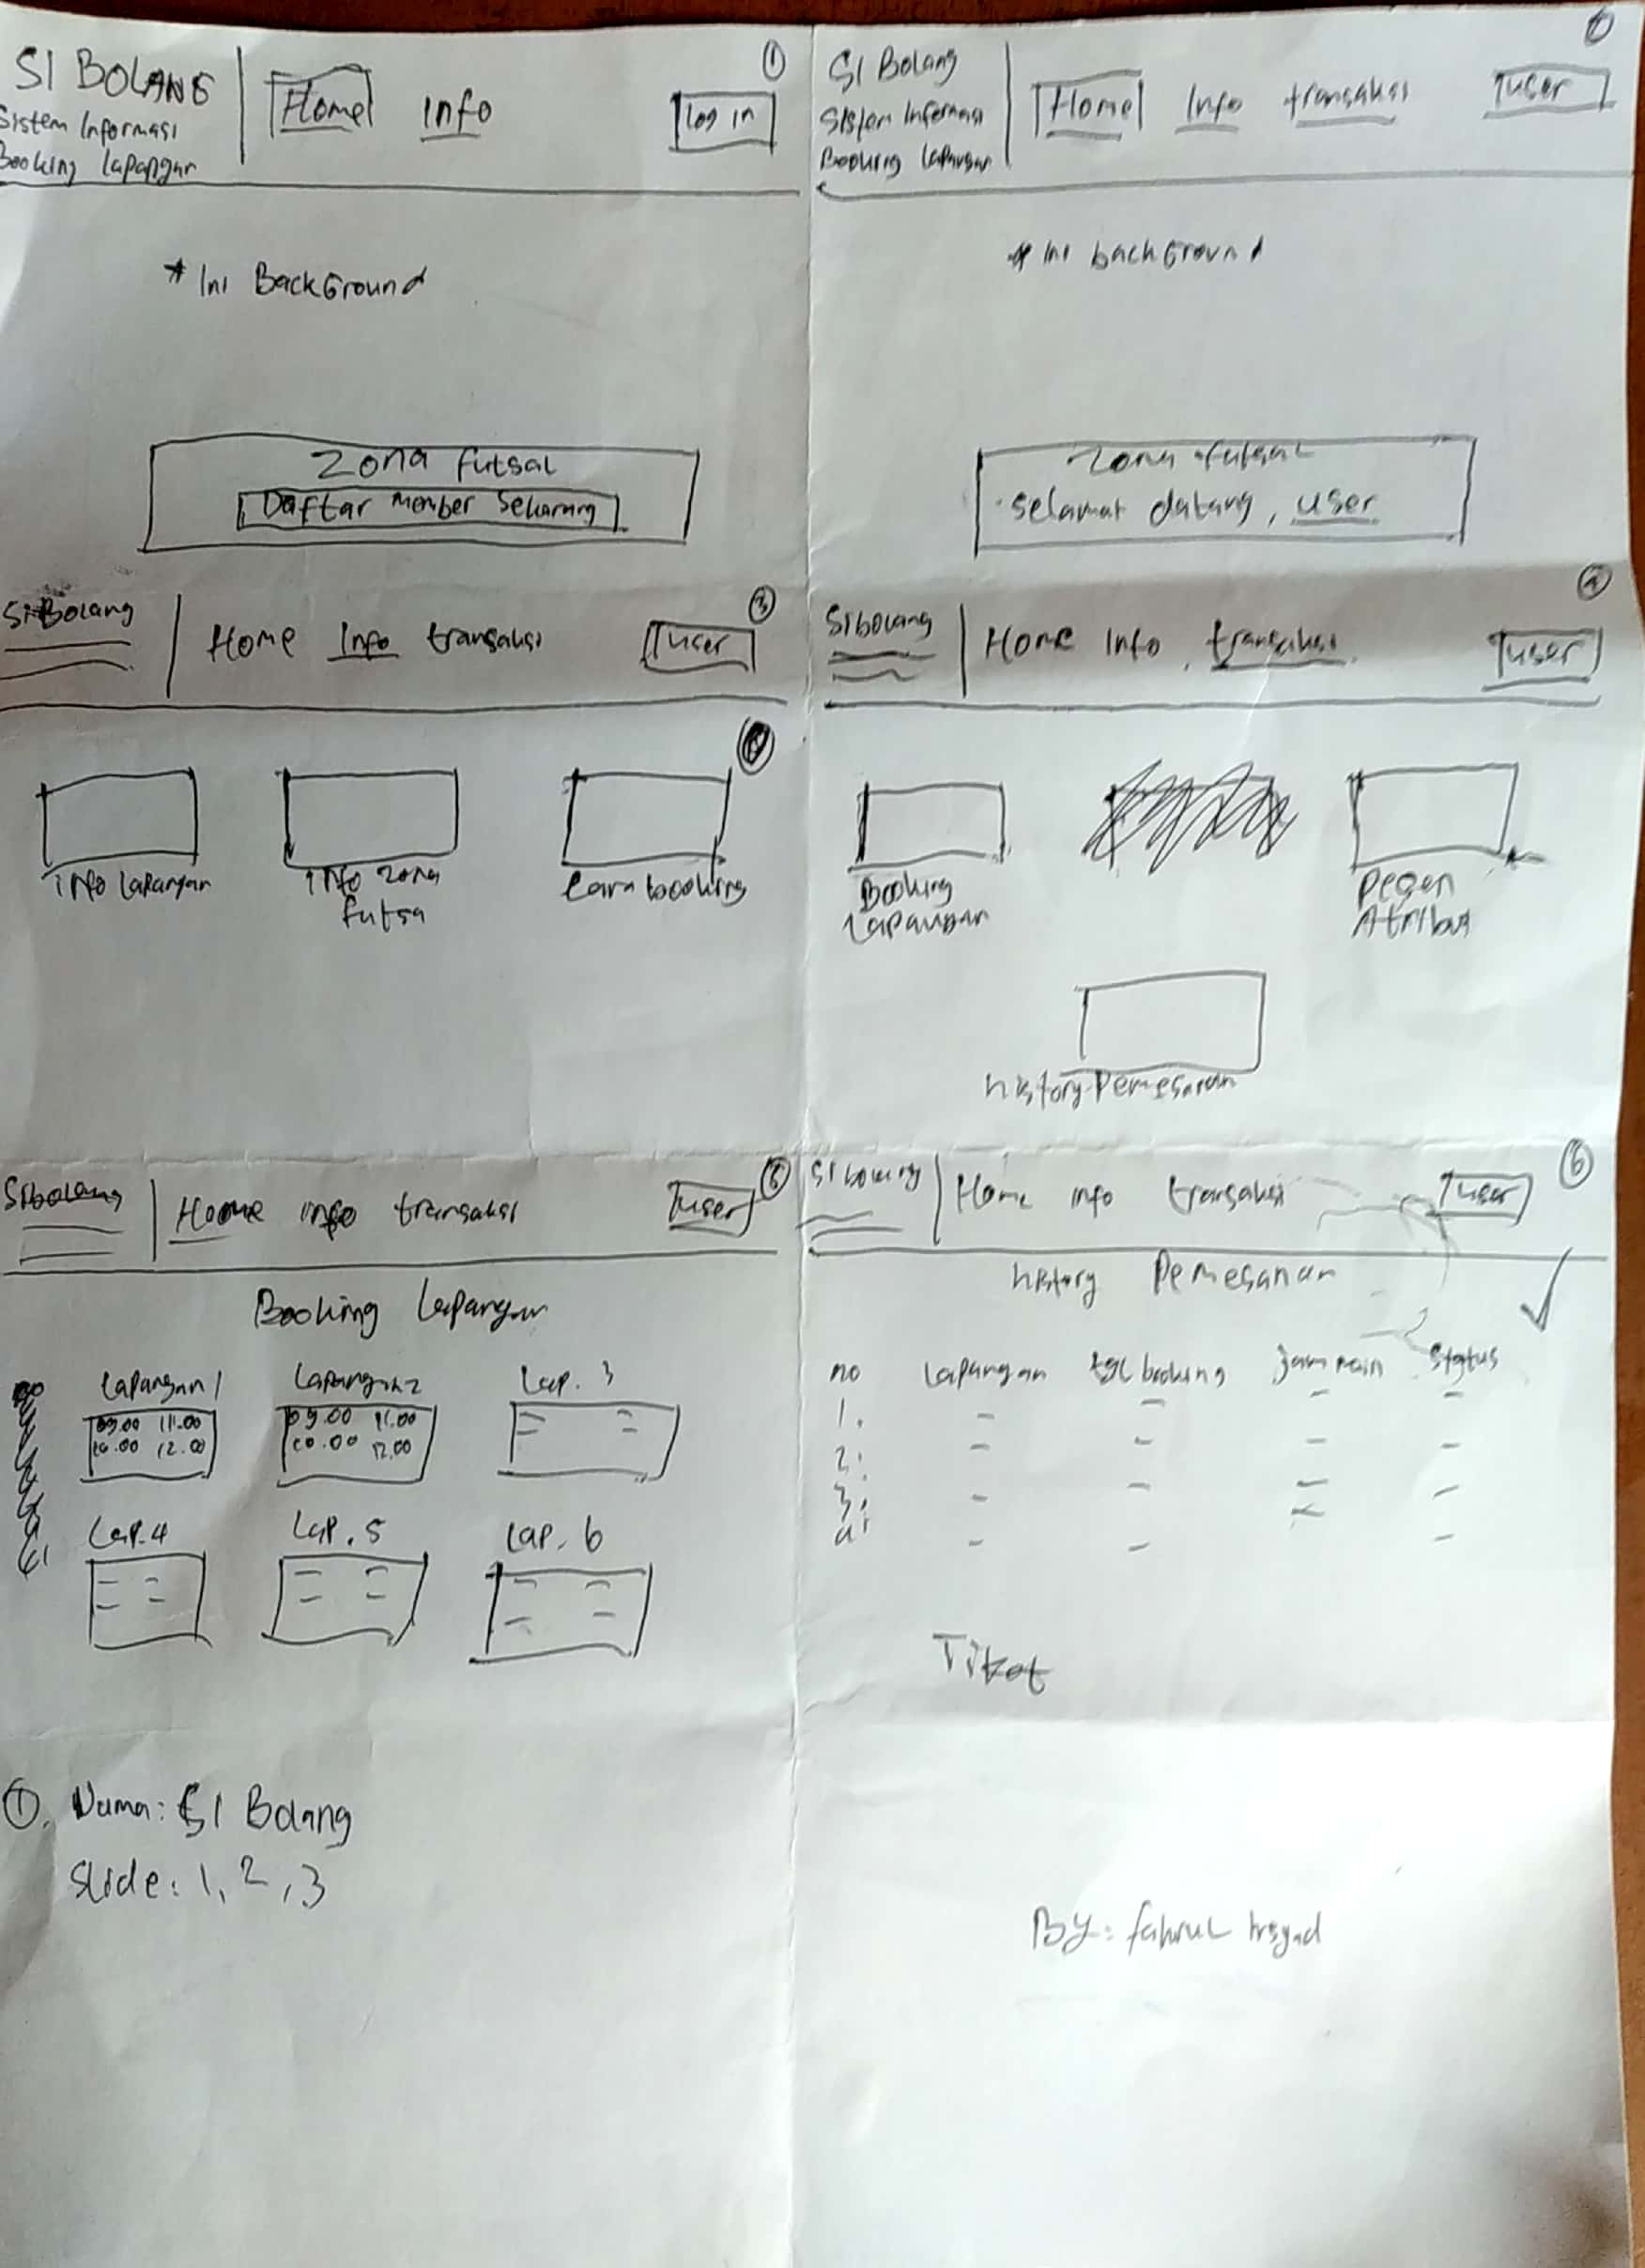 SI BOLANG
Sistem Informasi
Booking Lapangan
Home Info
Log in
1
* Ini BackGround
Zona futsal
Daftar member Sekarang
SI Bolang
Sistem Informasi
Booking Lapangan
Home Info transaksi
user
* Ini backGround
Zona futsal
selamat datang, user
SiBolang
Home Info transaksi
user
3
info Lapangan
info zona
futsa
Cara booking
SIbolang
Home Info transaksi
user
4
Booking
Lapangan
Pesan
Atribut
history Pemesanan
SIbolang
Home info transaksi
user
5
Booking Lapangan
Lapangan 1
09.00 11.00
10.00 12.00
Lapangan 2
09.00 11.00
10.00 12.00
Lap. 3
Lap. 4
Lap. 5
Lap. 6
SIbolang
Home info transaksi
user
6
history Pemesanan
no Lapangan tgl booking Jam main Status
1.
2.
3.
4.
Tiket
1. Nama: SI Bolang
Slide: 1, 2, 3
By: fahrul